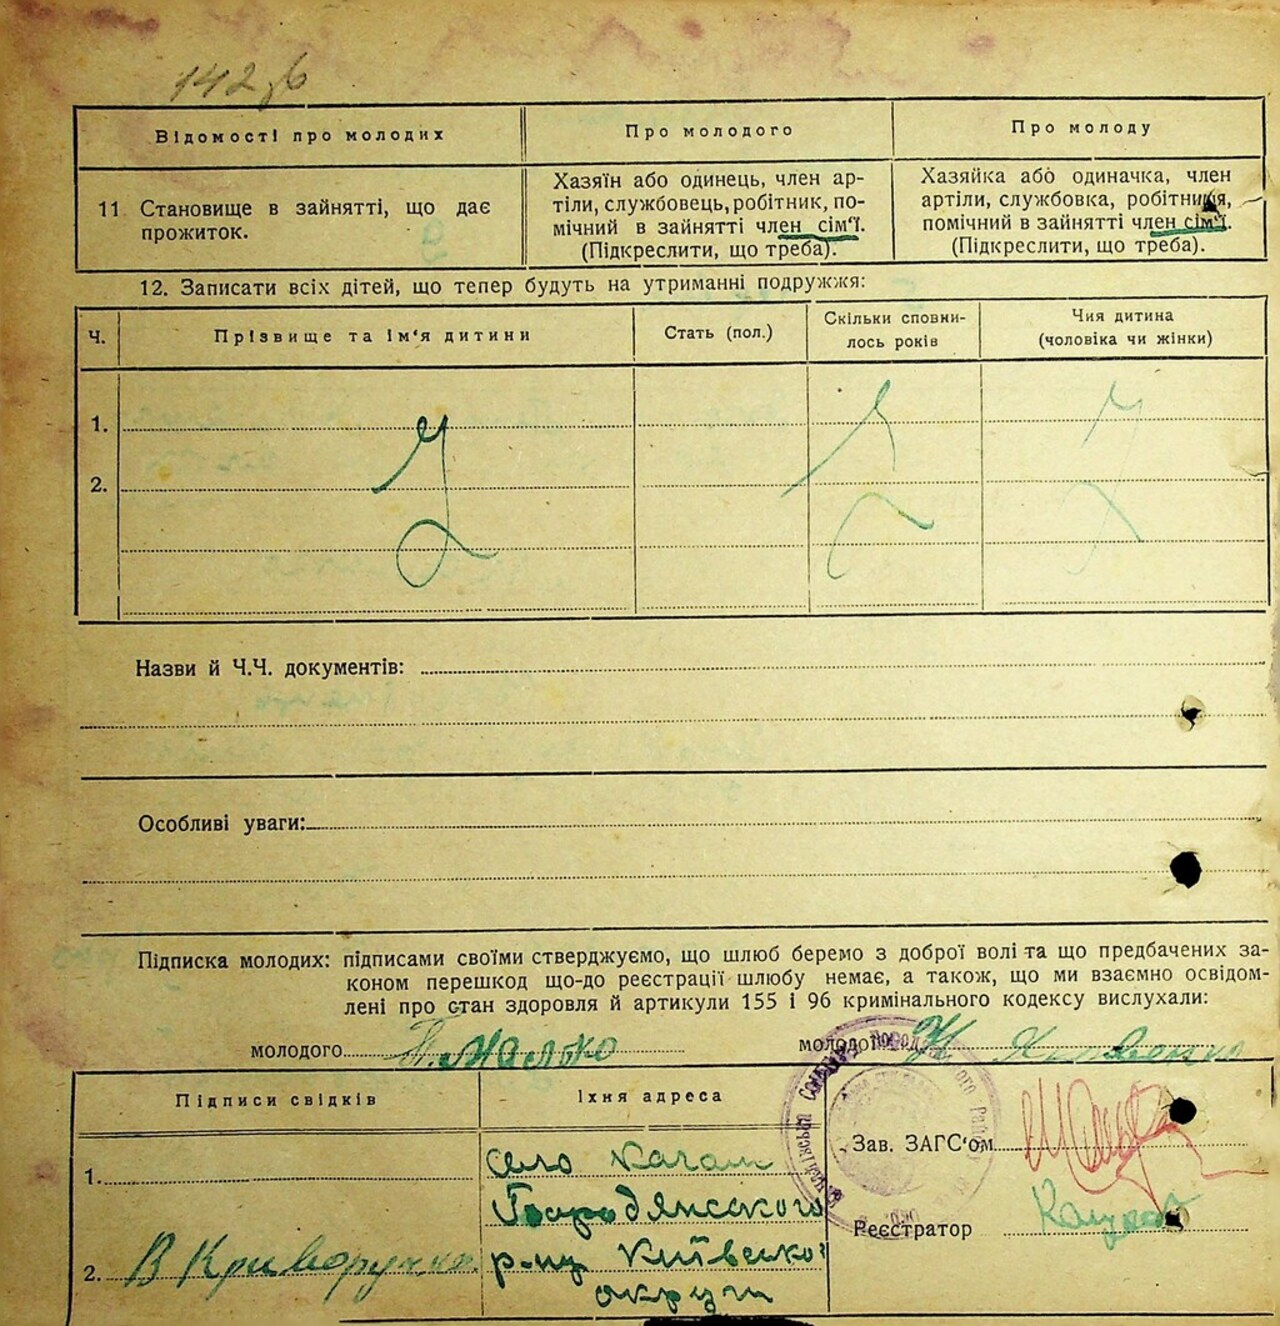 142 зв
Відомості про молодих
Про молодого
Про молоду
11 Становище в зайнятті, що дає
прожиток.
Хазяїн або одинець, член ар-
тіли, службовець, робітник, по-
мічний в зайнятті член сім'ї.
(Підкреслити, що треба).
Хазяйка або одиначка, член
артіли, службовка, робітниця,
помічний в зайнятті член сім'ї.
(Підкреслити, що треба).
12. Записати всіх дітей, що тепер будуть на утриманні подружжя:
Ч.
Прізвище та ім'я дитини
Стать (пол.)
Скільки сповни-
лось років
Чия дитина
(чоловіка чи жінки)
1.
2.
Назви й Ч.Ч. документів:
Особливі уваги:
Підписка молодих: підписами своїми стверджуємо, що шлюб беремо з доброї волі та що предбачених за-
коном перешкод що-до реєстрації шлюбу немає, а також, що ми взаємно освідом-
лені про стан здоровля й артикули 155 і 96 кримінального кодексу вислухали:
молодого П. Малько молодої Н Яковенко
Підписи свідків
Їхня адреса
1.
село Качали
Бородянського
2. В Криворучко
р-ну Київської
округи
Зав. ЗАГС'ом
Реєстратор